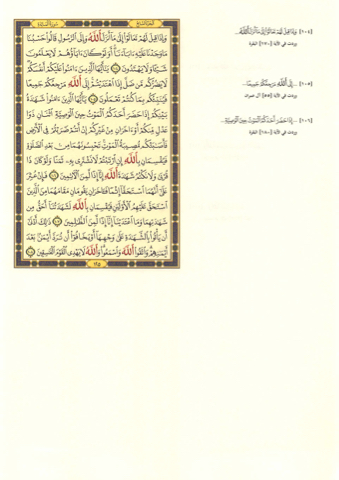 الجزء السابع
سورة المائدة
وَإِذَا قِيلَ لَهُمْ تَعَالَوْا إِلَىٰ مَا أَنزَلَ اللَّهُ وَإِلَى الرَّسُولِ قَالُوا حَسْبُنَا
مَا وَجَدْنَا عَلَيْهِ آبَاءَنَا أَوَلَوْ كَانَ آبَاؤُهُمْ لَا يَعْلَمُونَ
شَيْئًا وَلَا يَهْتَدُونَ ١٠٤ يَا أَيُّهَا الَّذِينَ آمَنُوا عَلَيْكُمْ أَنفُسَكُمْ
لَا يَضُرُّكُم مَّن ضَلَّ إِذَا اهْتَدَيْتُمْ إِلَى اللَّهِ مَرْجِعُكُمْ جَمِيعًا
فَيُنَبِّئُكُم بِمَا كُنتُمْ تَعْمَلُونَ ١٠٥ يَا أَيُّهَا الَّذِينَ آمَنُوا شَهَادَةُ
بَيْنِكُمْ إِذَا حَضَرَ أَحَدَكُمُ الْمَوْتُ حِينَ الْوَصِيَّةِ اثْنَانِ ذَوَا
عَدْلٍ مِّنكُمْ أَوْ آخَرَانِ مِنْ غَيْرِكُمْ إِنْ أَنتُمْ ضَرَبْتُمْ فِي الْأَرْضِ
فَأَصَابَتْكُم مُّصِيبَةُ الْمَوْتِ تَحْبِسُونَهُمَا مِن بَعْدِ الصَّلَاةِ
فَيُقْسِمَانِ بِاللَّهِ إِنِ ارْتَبْتُمْ لَا نَشْتَرِي بِهِ ثَمَنًا وَلَوْ كَانَ ذَا
قُرْبَىٰ وَلَا نَكْتُمُ شَهَادَةَ اللَّهِ إِنَّا إِذًا لَّمِنَ الْآثِمِينَ ١٠٦ فَإِنْ عُثِرَ
عَلَىٰ أَنَّهُمَا اسْتَحَقَّا إِثْمًا فَآخَرَانِ يَقُومَانِ مَقَامَهُمَا مِنَ الَّذِينَ
اسْتَحَقَّ عَلَيْهِمُ الْأَوْلَيَانِ فَيُقْسِمَانِ بِاللَّهِ لَشَهَادَتُنَا أَحَقُّ مِن
شَهَادَتِهِمَا وَمَا اعْتَدَيْنَا إِنَّا إِذًا لَّمِنَ الظَّالِمِينَ ١٠٧ ذَٰلِكَ أَدْنَىٰ
أَن يَأْتُوا بِالشَّهَادَةِ عَلَىٰ وَجْهِهَا أَوْ يَخَافُوا أَن تُرَدَّ أَيْمَانٌ بَعْدَ
أَيْمَانِهِمْ وَاتَّقُوا اللَّهَ وَاسْمَعُوا وَاللَّهُ لَا يَهْدِي الْقَوْمَ الْفَاسِقِينَ ١٠٨
١٢٥
[١٠٤] وَإِذَا قِيلَ لَهُمْ تَعَالَوْا إِلَىٰ مَا أَنزَلَ اللَّهُ...
وردت في الآية [١٧٠] البقرة
[١٠٥] ... إِلَى اللَّهِ مَرْجِعُكُمْ جَمِيعًا...
وردت في الآية [٥٥] آل عمران
[١٠٦] ... إِذَا حَضَرَ أَحَدَكُمُ الْمَوْتُ حِينَ الْوَصِيَّةِ...
وردت في الآية [١٨٠] البقرة